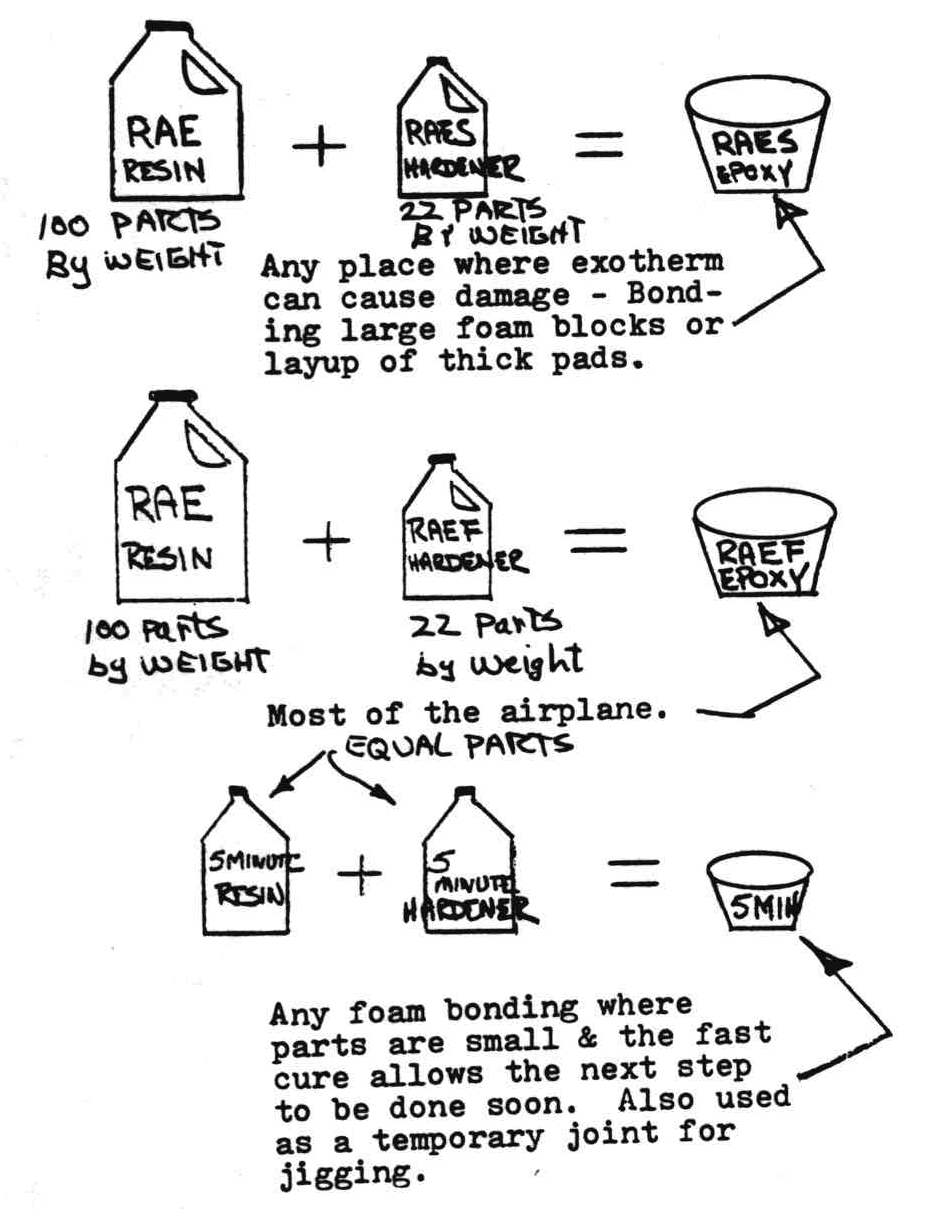 RAE
RESIN
+
RAES
HARDENER
=
RAES
EPOXY
100 PARTS
By WEIGHT
22 PARTS
BY WEIGHT
Any place where exotherm
can cause damage - Bond-
ing large foam blocks or
layup of thick pads.
RAE
RESIN
+
RAEF
HARDENER
=
RAEF
EPOXY
100 Parts
by WEIGHT
22 Parts
by Weight
Most of the airplane.
EQUAL PARTS
5 MINUTE
RESIN
+
5
MINUTE
HARDENER
=
5 MIN
Any foam bonding where
parts are small & the fast
cure allows the next step
to be done soon. Also used
as a temporary joint for
jigging.